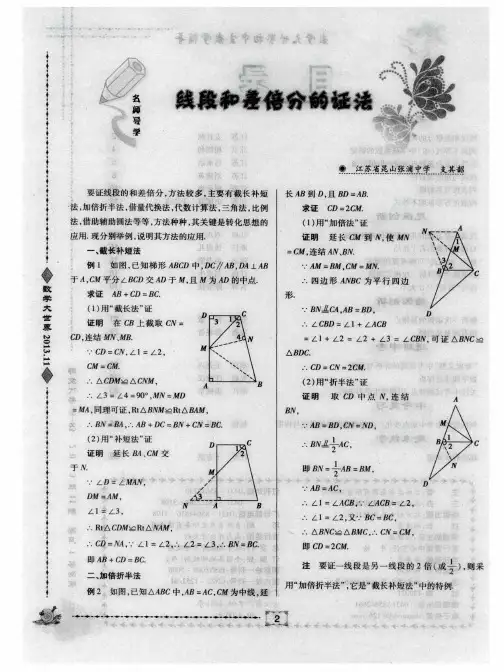 名师导学
线段和差倍分的证法
江苏省昆山张浦中学 支其韶
要证线段的和差倍分,方法较多,主要有截长补短
法,加倍折半法,借量代换法,代数计算法,三角法,比例
法,借助辅助圆法等等,方法种种,其关键是转化思想的
应用.现分别举例,说明其方法的应用.
一、截长补短法
例1 如图,已知梯形ABCD中,DC∥AB,DA⊥AB
于A,CM平分∠BCD交AD于M,且M为AD的中点.
求证 AB+CD=BC.
(1)用“截长法”证
证明 在CB上截取CN=
CD,连结MN、MB.
∵CD=CN,∠1=∠2,
CM=CM.
∴△CDM≌△CNM,
∴∠3=∠4=90°,MN=MD
=MA,同理可证,Rt△BNM≌Rt△BAM,
∴BN=BA,∴AB+DC=BN+CN=BC.
(2)用“补短法”证
证明 延长BA、CM交
于N.
∵∠D=∠MAN,
DM=AM,
∠1=∠3,
∴Rt△CDM≌Rt△NAM,
∴CD=NA,∵∠1=∠2,∴∠2=∠3,∴BN=BC.
即AB+CD=BC.
二、加倍折半法
例2 如图,已知△ABC中,AB=AC,CM为中线,延
长AB到D,且BD=AB.
求证 CD=2CM.
(1)用“加倍法”证
证明 延长CM到N,使MN
=CM,连结AN、BN.
∵AM=BM,CM=MN.
∴四边形ANBC为平行四边
形.
∵BN∥CA,AB=BD,
∴∠CBD=∠1+∠ACB
=∠1+∠2=∠2+∠3=∠CBN,可证△BNC≌
△BDC.
∴CD=CN=2CM.
(2)用“折半法”证
证明 取CD中点N,连结
BN,
∵AB=BD,CN=ND,
∴BN∥=1/2AC,
即BN=1/2AB=BM,
∵AB=AC,
∴∠1=∠ACB,∵∠ACB=∠2,
∴∠1=∠2,又∵BC=BC,
∴△BNC≌△BMC,∴CN=CM,
即CD=2CM.
注 要证一线段是另一线段的2倍(或1/2),则采
用“加倍折半法”,它是“截长补短法”中的特例.
数学大世界 2013.11
2